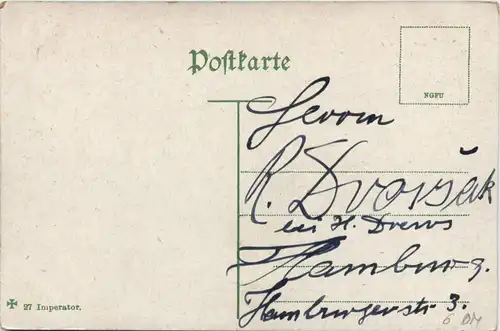 Postkarte
NGFU
Herrn
R. Dvořak
bei H. Drews
Hamburg.
Hamburgerstr. 3.
6 DM
27 Imperator.